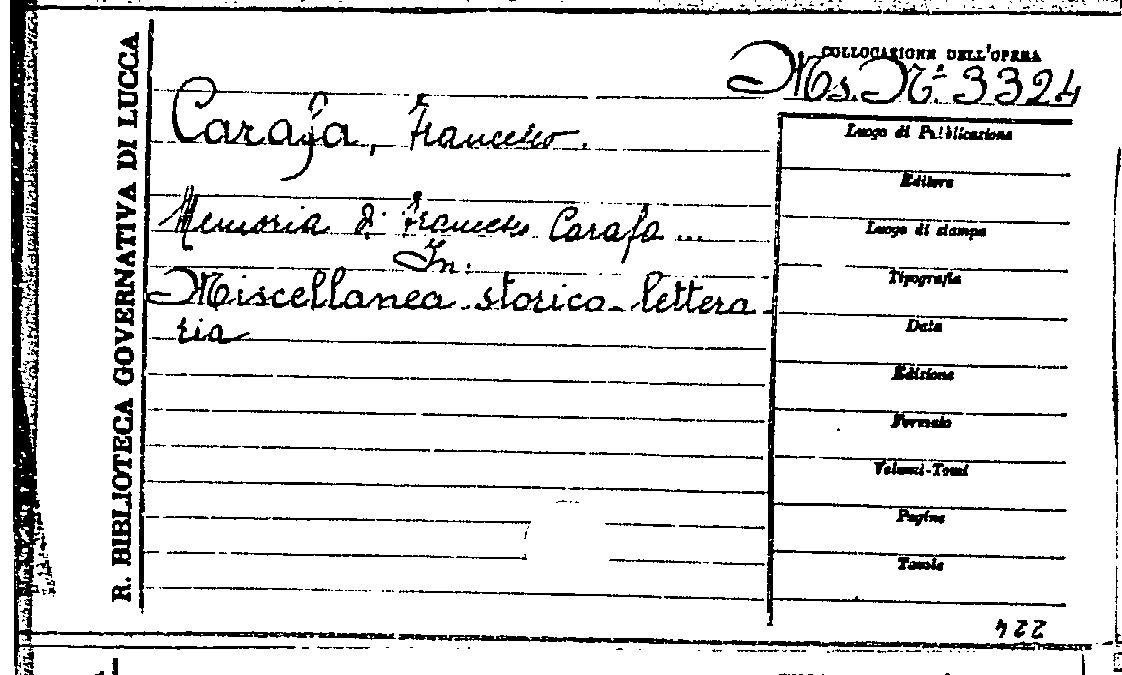 R. BIBLIOTECA GOVERNATIVA DI LUCCA
COLLOCAZIONE DELL'OPERA
Ms. N.º 3324
Carafa, Francesco.
Memoria di Francesco Carafa ...
In:
Miscellanea storico-lettera-
ria
Luogo di Pubblicazione
Editore
Luogo di stampa
Tipografia
Data
Edizione
Formato
Volumi-Tomi
Pagine
Tavole
224